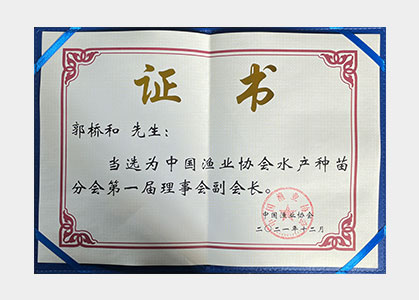 证 书
郭桥和 先生：
当选为中国渔业协会水产种苗
分会第一届理事会副会长。
中国渔业协会
二〇二一年十二月